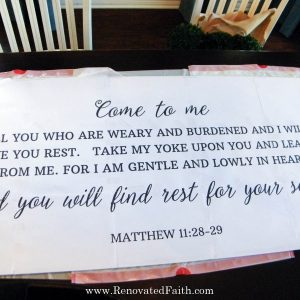 Come to me
LL YOU WHO ARE WEARY AND BURDENED AND I WIL
VE YOU REST. TAKE MY YOKE UPON YOU AND LEA
FROM ME. FOR I AM GENTLE AND LOWLY IN HEAR
d you will find rest for your so
MATTHEW 11:28-29
www.RenovatedFaith.com